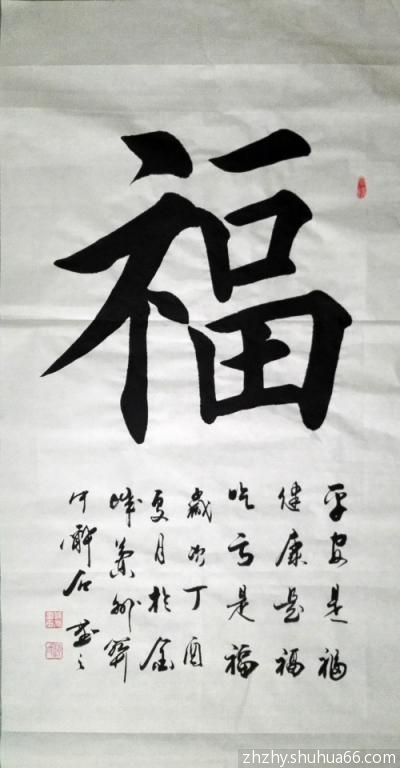 福
平安是福
健康是福
吃亏是福
歲次丁酉
夏月於金
城蘭州
石書之
zhzhyshuhua66.com